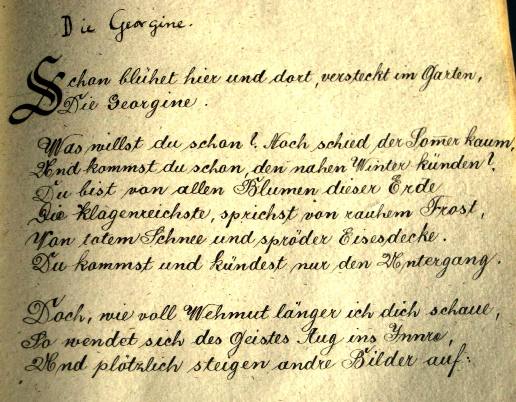 Die Georgine.
Schon blühet hier und dort, versteckt im Garten,
Die Georgine.
Was willst du schon? Noch schied der Som̅er kaum,
Und kommst du schon, den nahen Winter künden?
Du bist von allen Blumen dieser Erde
Die klagenreichste, sprichst von rauhem Frost,
Von totem Schnee und spröder Eisesdecke.
Du kommst und kündest nur den Untergang.
Doch, wie voll Wehmut länger ich dich schaue,
So wendet sich des Geistes Aug ins Innre,
Und plötzlich steigen andre Bilder auf: